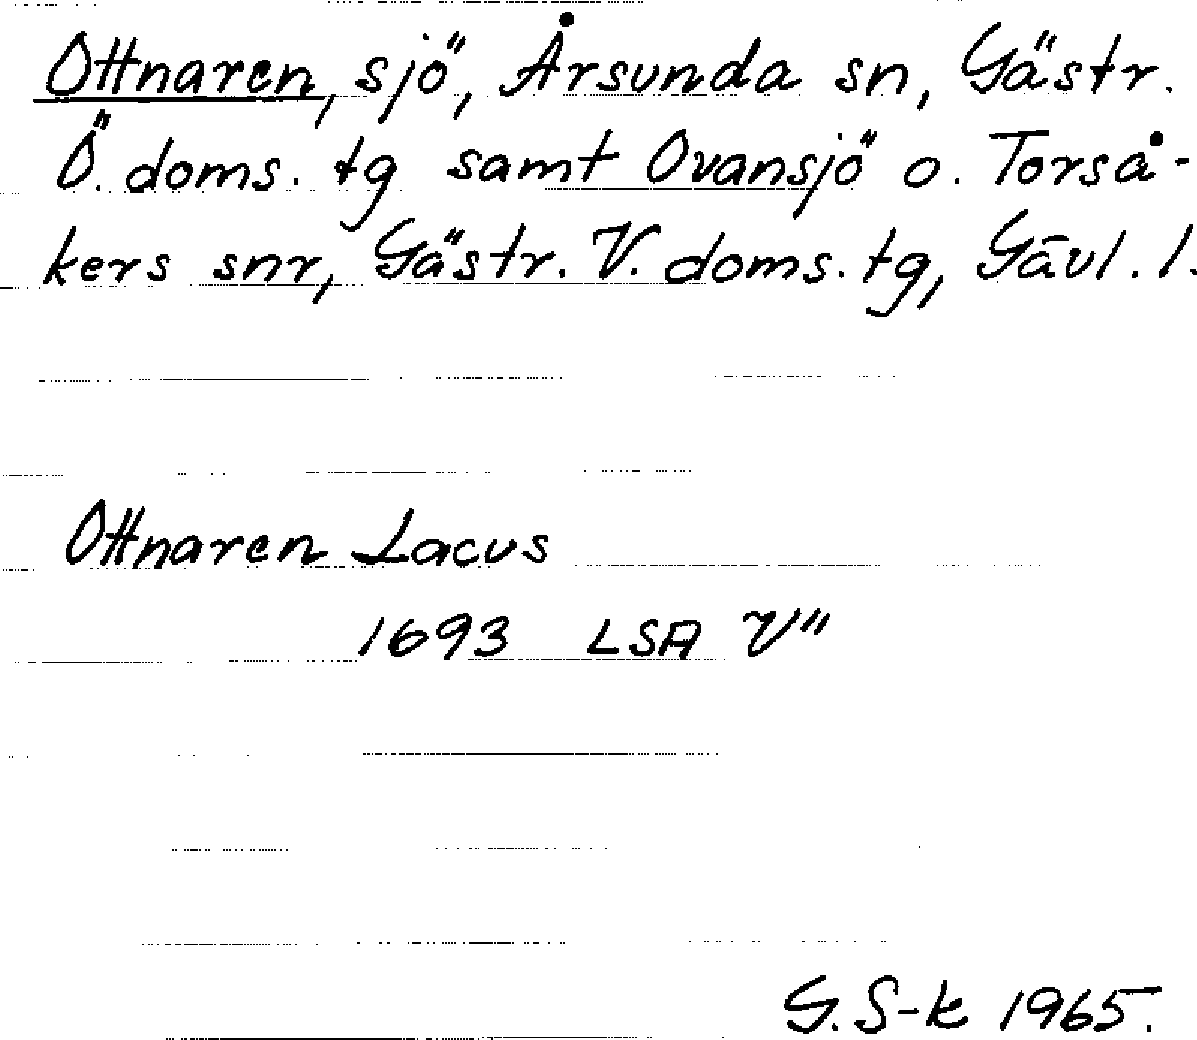 Ottnaren, sjö, Årsunda sn, Gästr.
Ö. doms. tg samt Ovansjö o. Torså-
kers snr, Gästr. V. doms. tg, Gävl. l.
Ottnaren Lacus
1693 LSA V"
G. S-k 1965.